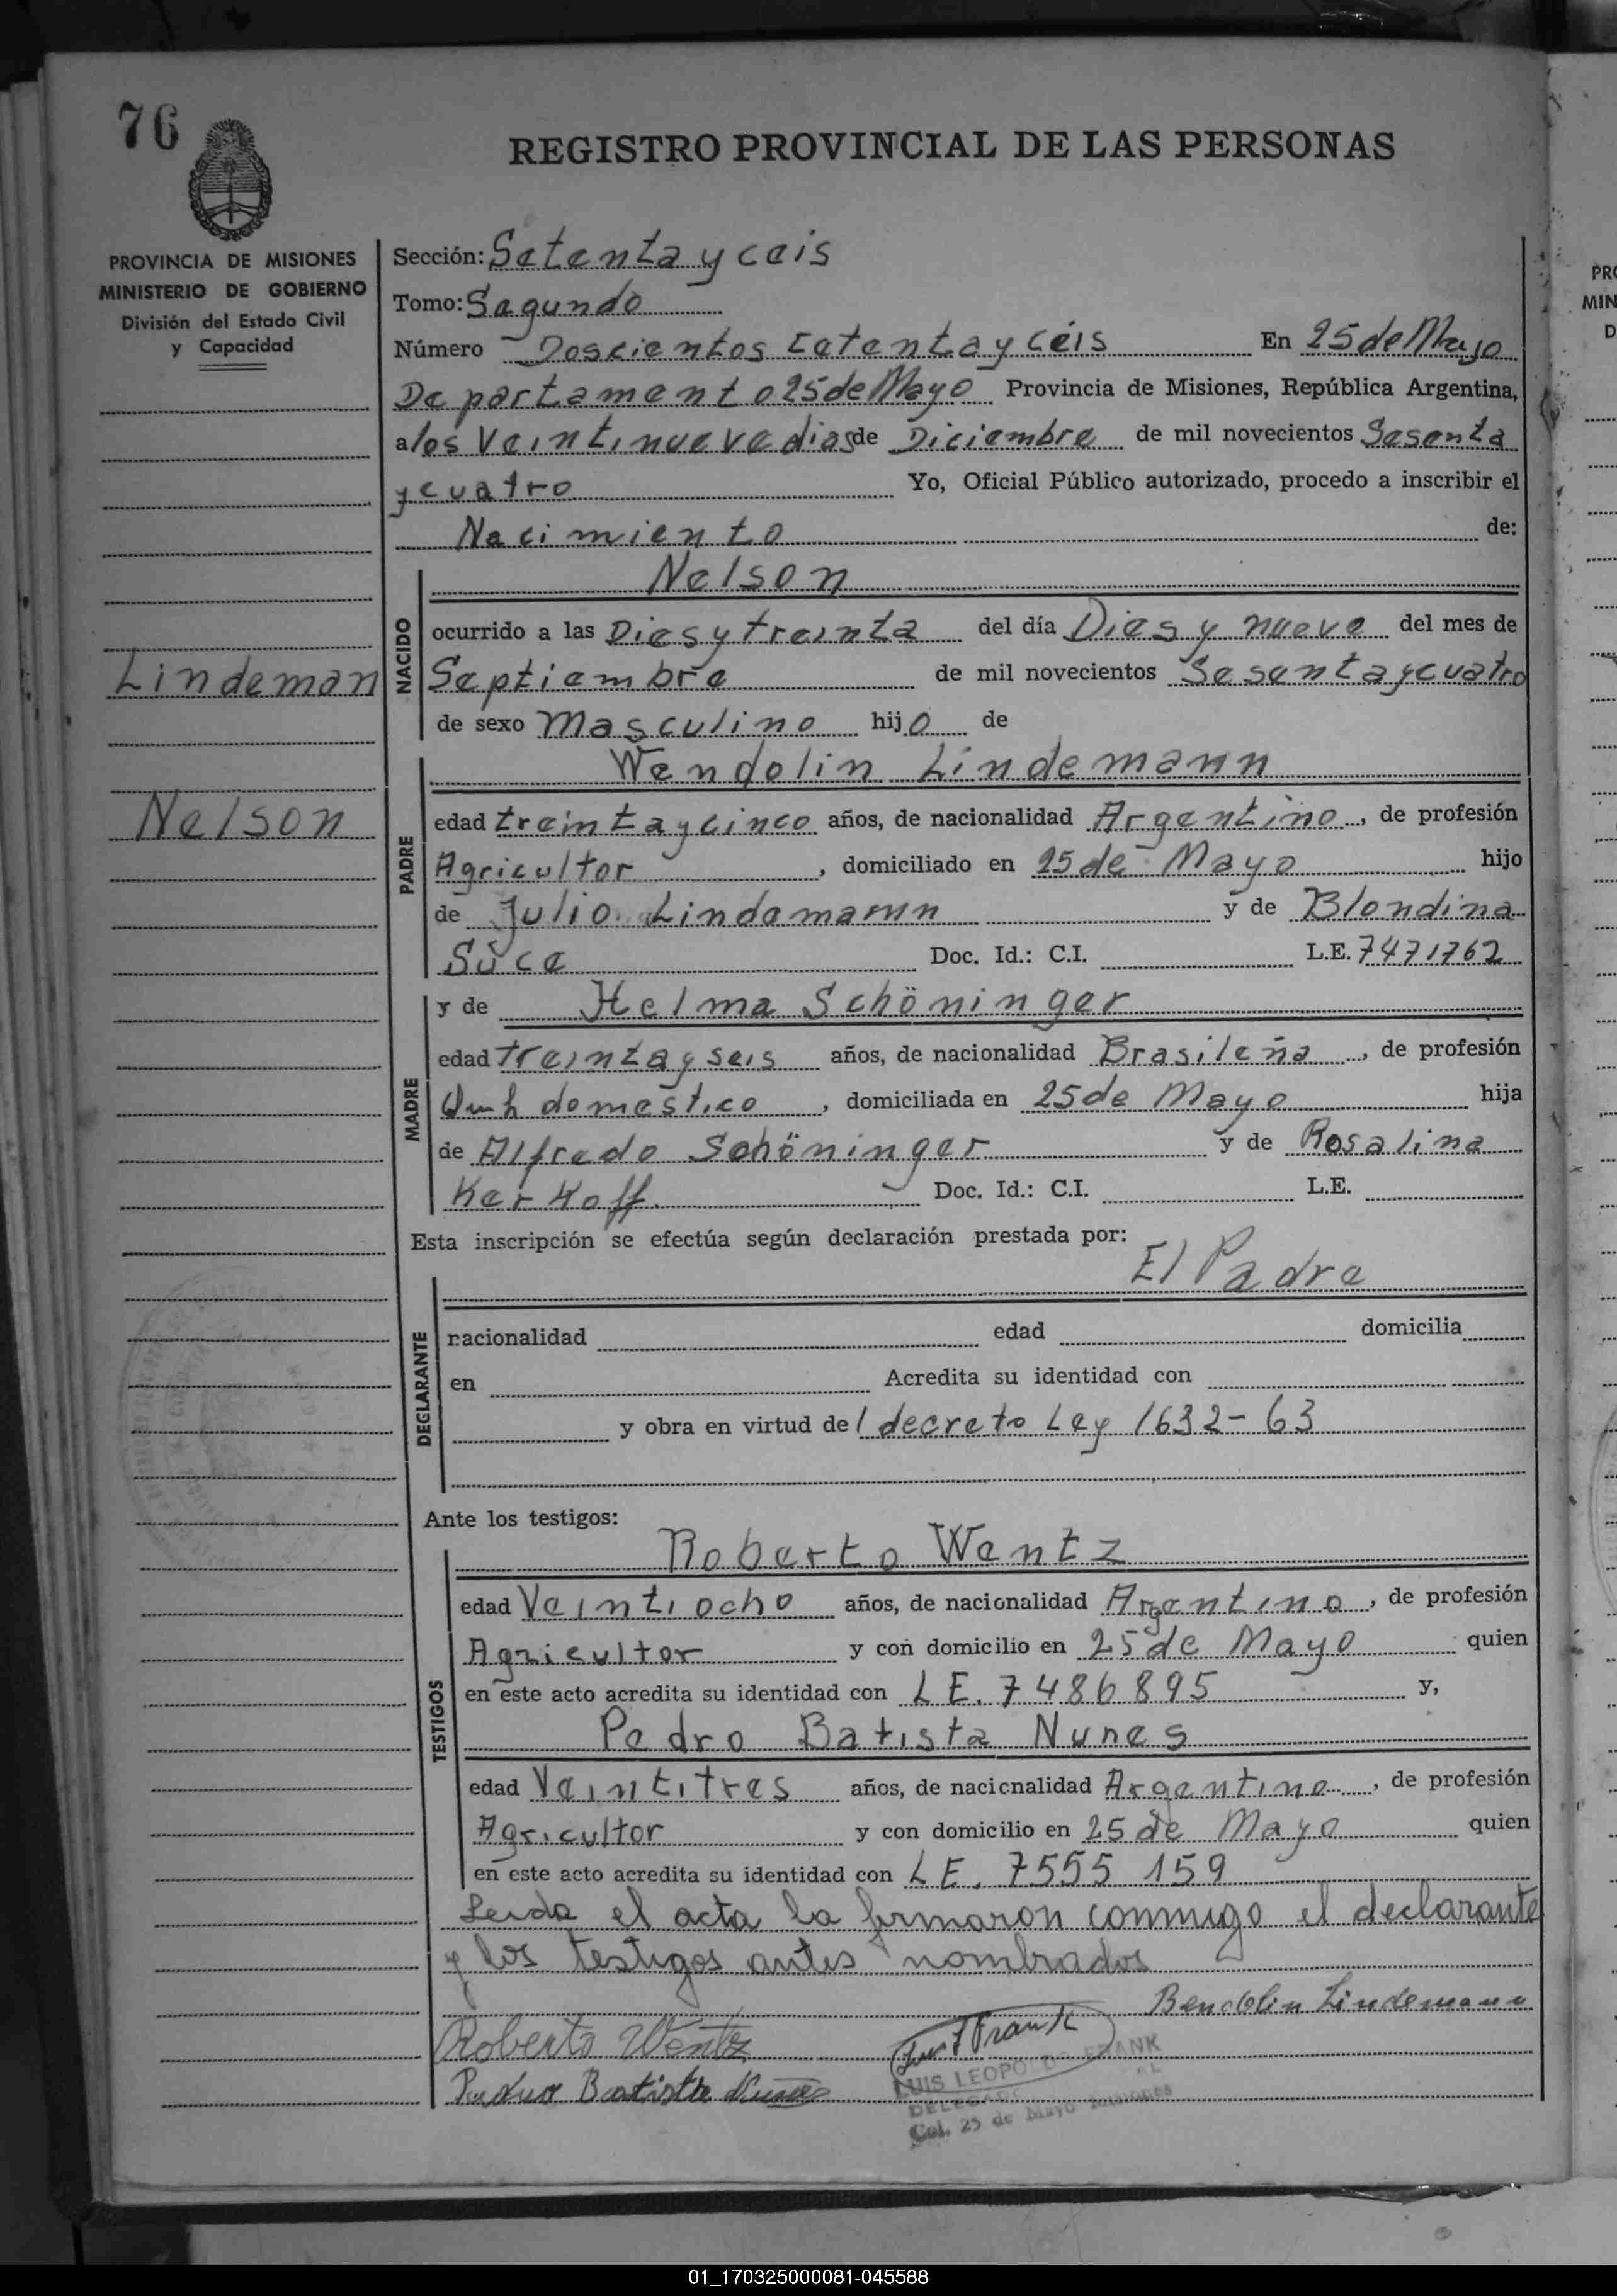 76
REGISTRO PROVINCIAL DE LAS PERSONAS
PROVINCIA DE MISIONES
MINISTERIO DE GOBIERNO
División del Estado Civil
y Capacidad
Lindeman
Nelson
Sección: Setenta y ceis
Tomo: Segundo
Número Doscientos Cetenta y Céis En 25 de Mayo
Departamento 25 de Mayo Provincia de Misiones, República Argentina,
a los Veintinueve dias de Diciembre de mil novecientos Sesenta
y cuatro Yo, Oficial Público autorizado, procedo a inscribir el
Nacimiento de:
Nelson
NACIDO
ocurrido a las Dies y treinta del día Dies y nueve del mes de
Septiembre de mil novecientos Sesenta y cuatro
de sexo Masculino hijo de
Wendolin Lindemann
PADRE
edad treinta y cinco años, de nacionalidad Argentino, de profesión
Agricultor, domiciliado en 25 de Mayo hijo
de Julio Lindemann y de Blondina
Süce Doc. Id.: C.I. L.E. 7471762
y de Helma Schöninger
MADRE
edad treinta y seis años, de nacionalidad Brasileña, de profesión
domestico, domiciliada en 25 de Mayo hija
de Alfredo Schöninger y de Rosalina
Kerkoff. Doc. Id.: C.I. L.E.
Esta inscripción se efectúa según declaración prestada por:
El Padre
DECLARANTE
nacionalidad edad domicilia
en Acredita su identidad con
y obra en virtud del decreto Ley 1632-63
Ante los testigos:
Roberto Wentz
TESTIGOS
edad Veintiocho años, de nacionalidad Argentino, de profesión
Agricultor y con domicilio en 25 de Mayo quien
en este acto acredita su identidad con L E. 7486895 y,
Pedro Batista Nunes
edad Veintitres años, de nacionalidad Argentino, de profesión
Agricultor y con domicilio en 25 de Mayo quien
en este acto acredita su identidad con L E. 7555 159
Leida el acta la firmaron conmigo el declarante
y los testigos antes nombrados
Bendolin Lindemann
Roberto Wentz
Pedro Batista Nunes
LUIS LEOPOLDO FRANK
DELEGADO
Col. 25 de Mayo Misiones
PRO
MIN
D
01_170325000081-045588